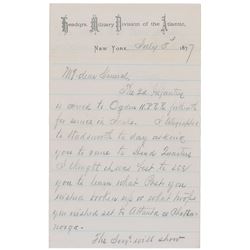 Headqrs. Military Division of the Atlantic,
New York, July 5th 1877
My dear General,
The 2d Infantry
is ordered to Ogden U.P.R.R. forthwith
for service in I
to Wadsworth to day asking
you to come to Head Quarters
I thought it was best to see
you to learn what Post you
wished broken up or what troops
you wished sent to Atlanta or Chatta-
nooga.
The Surg. will show